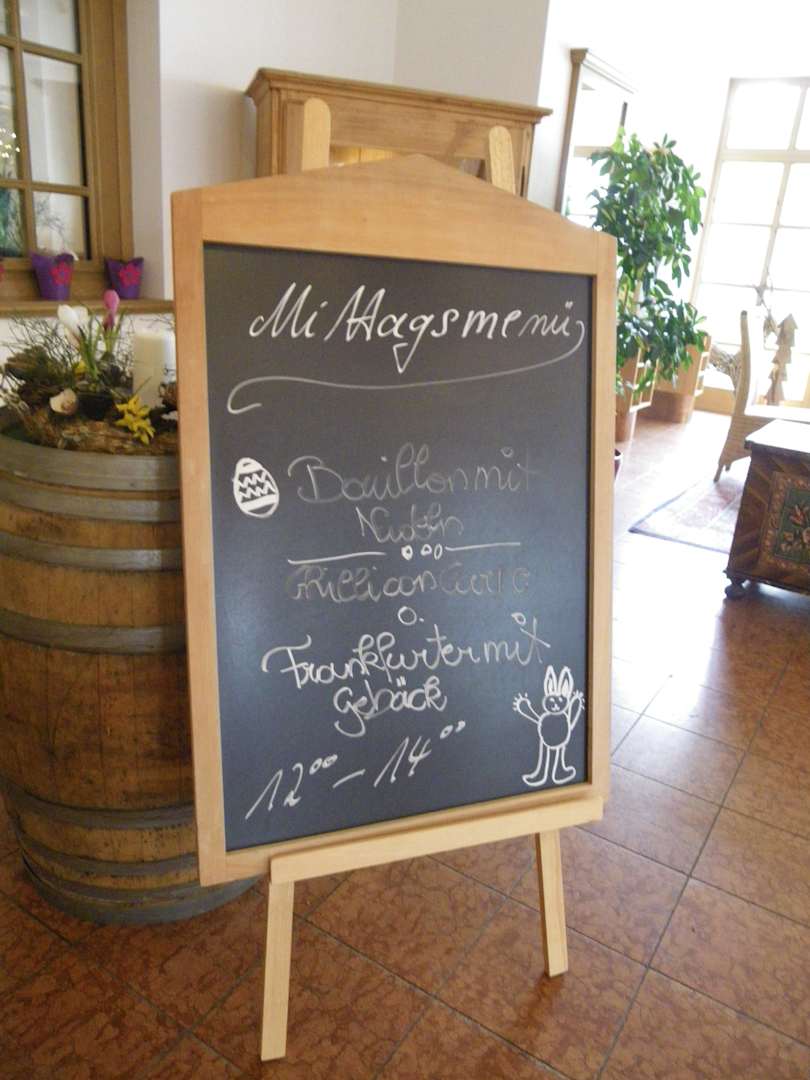 Mittagsmenü
Bouillon mit
Nudeln
Chilli con Carne
o.
Frankfurter mit
Gebäck
12⁰⁰ – 14⁰⁰